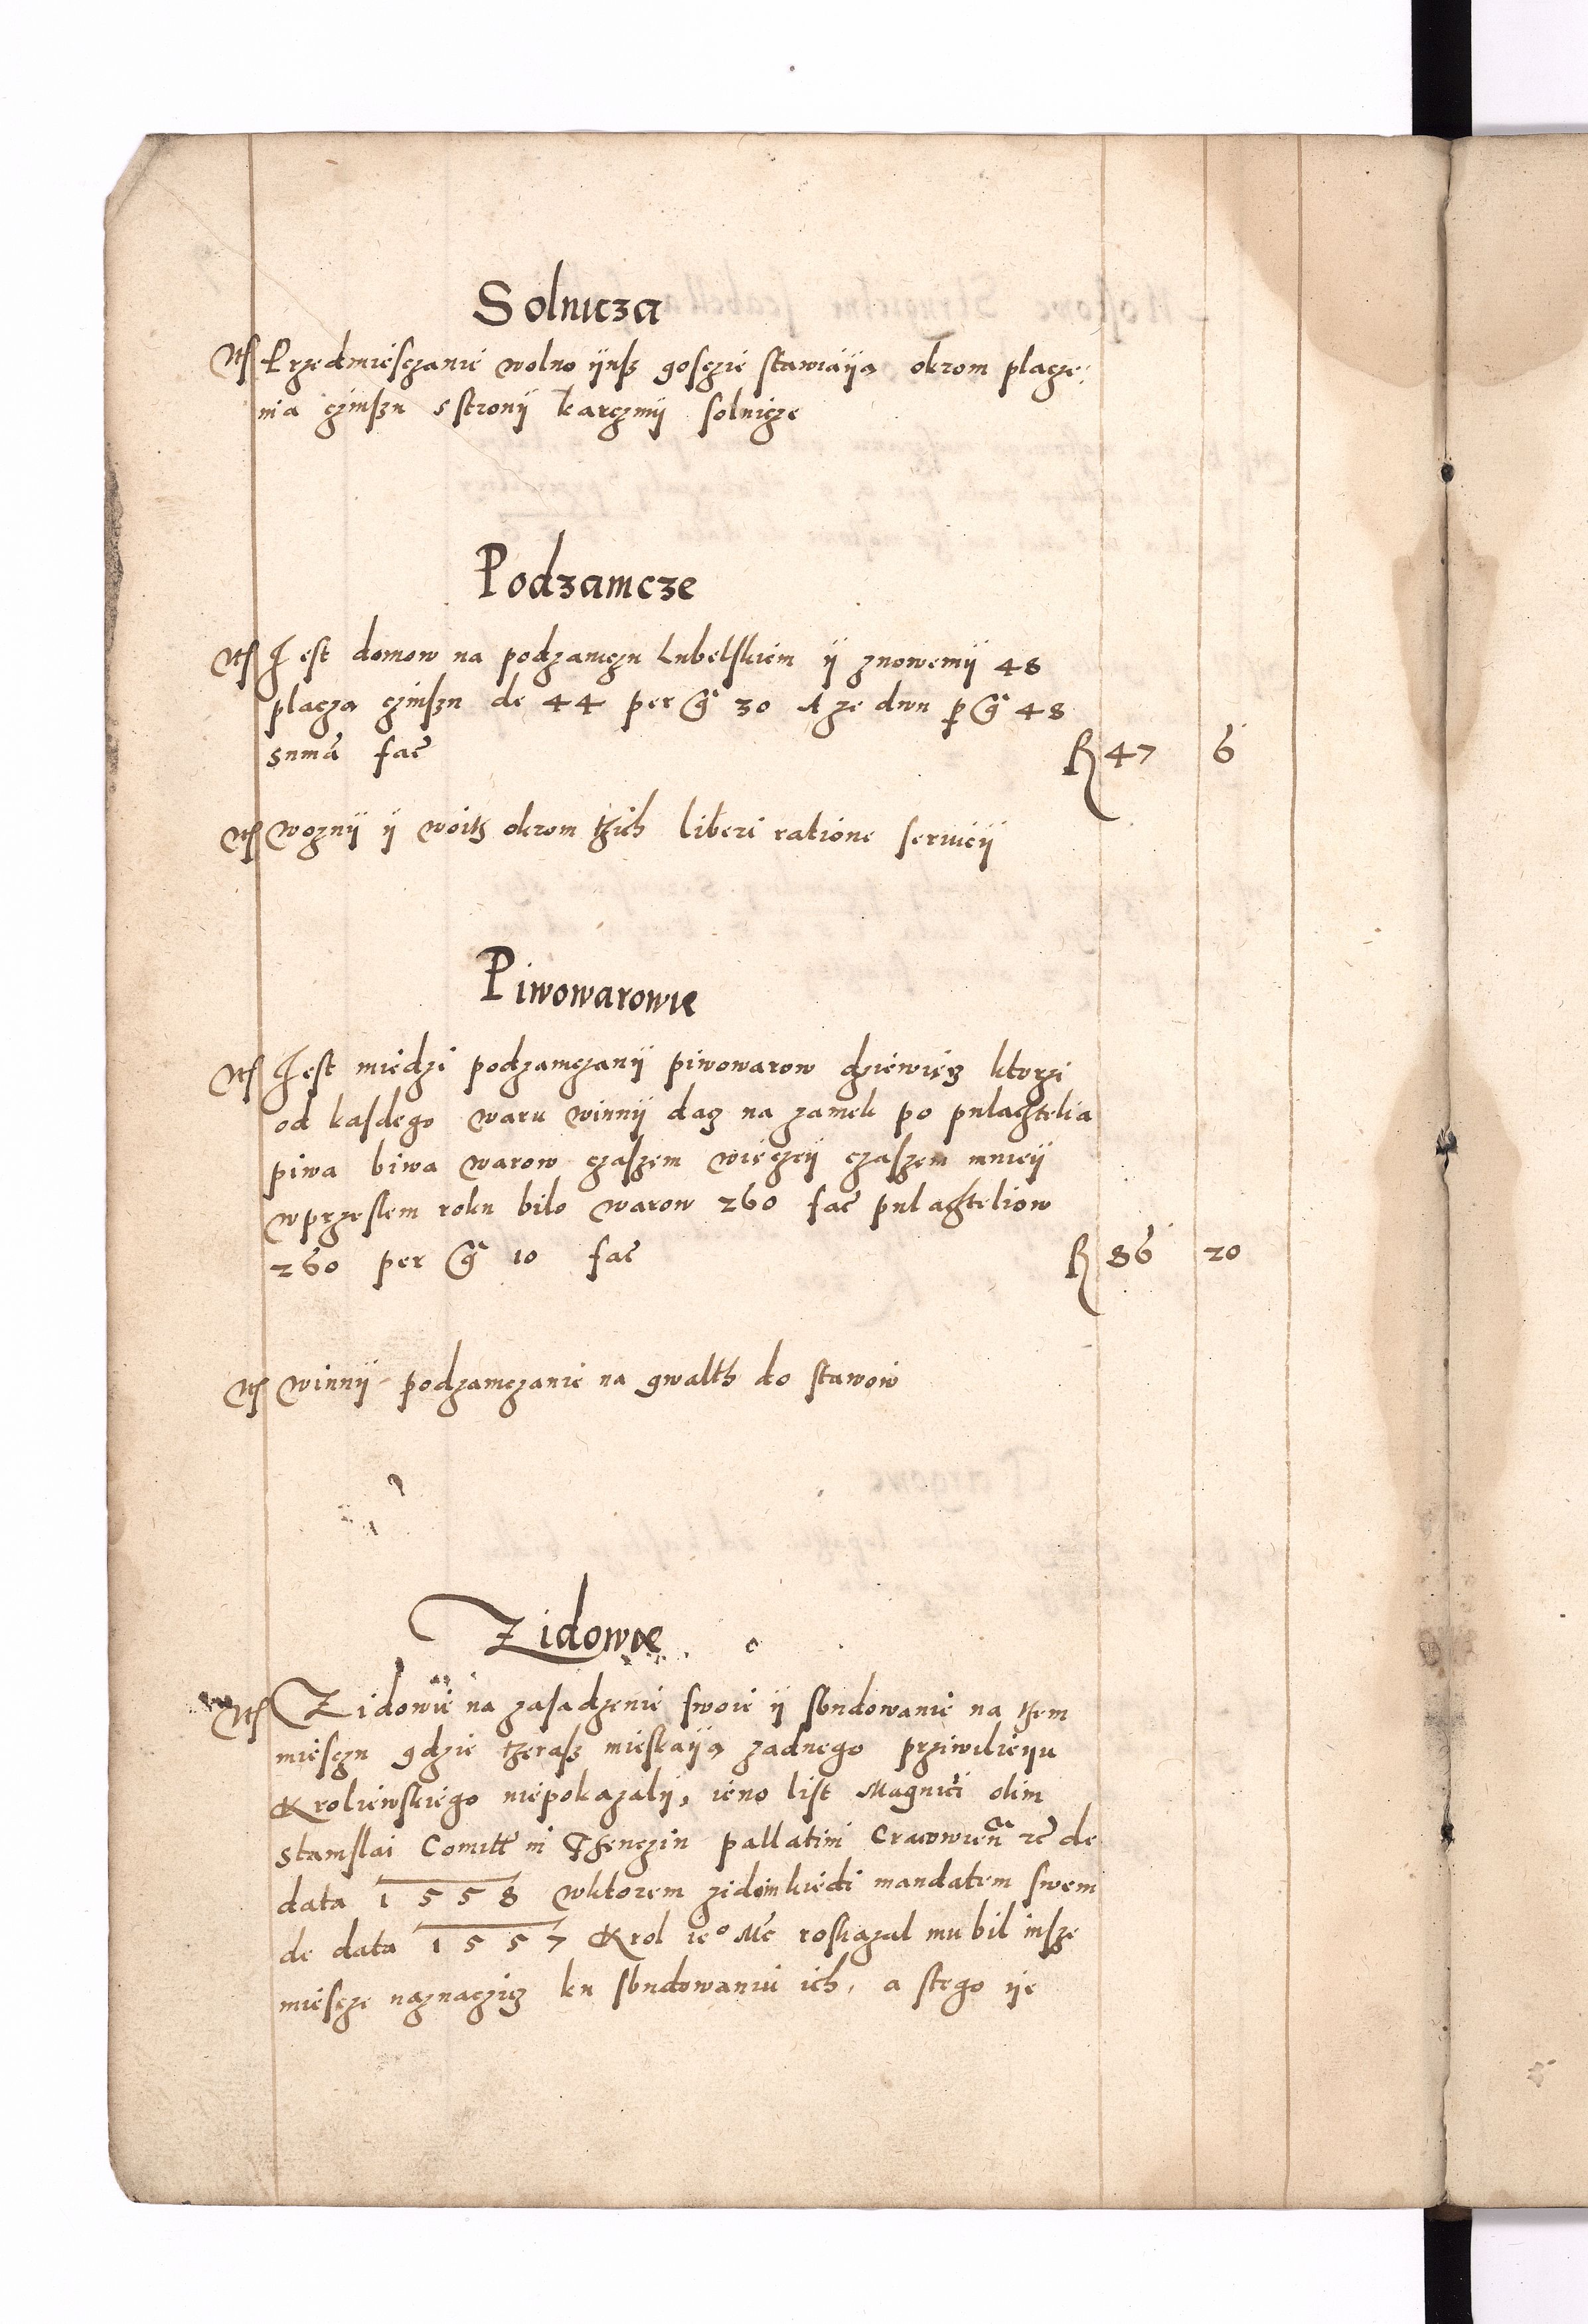 Solnicza
Itf Przedmiesczanie wolno ijnsz gosczie stawiaija okrom placze:
nia czinszu s stronij karczmij solnicze
Podzamcze
Itf Jest domow na podzamczu Lubelskiem ij znowemij 48
placza czinszu de 44 per gr 30 A ze dwu p gr 48
suma fac R 47 6
Itf woznij ij woitz okrom tzich liberi ratione servicij
Piwowarowie
Itf Jest miedzi podzamczanij piwowarow dziewięcz ktorzi
od kasdego waru winnij dacz na zamek po pulachtelia
piwa biwa warow czaszem wieczeij czaszem mnieij
wprzeslem roku bilo warow 260 fac pulachteliow
260 per gr 10 fac R 86 20
Itf winnij podzamczanie na gwalth do stawow
Zidowie
Itf Zidowie na zasadzenie swoie ij sbudowanie na tzem
miesczu gdzie tzerasz mieskaija zadnego prziwilieiju
Kroliewskiego niepokazalij, ieno list Magnici olim
Stanislai Comitt in Thenczin pallatini Cracowien zc de
data 1558 wktorem zidom kiedi mandatem swem
de data 1557 Krol ieo Mc roskazal mu bil insze
miescze naznaczicz ku sbudowaniu ich, a stego ije